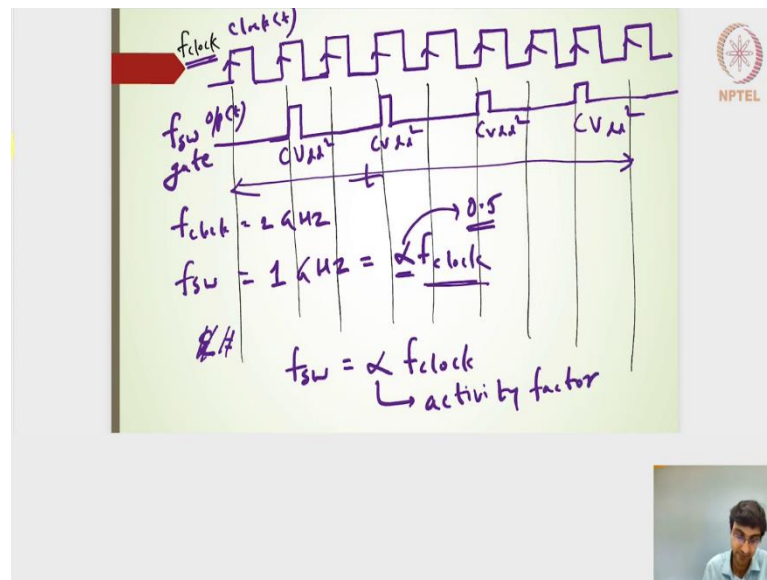 clock(t)
fclock
NPTEL
fsw o/p(t)
gate
CVdd² CVdd² CVdd² CVdd²
t
fclock = 2 GHz
0.5
fsw = 1 GHz = α fclock
fsw = α fclock
activity factor